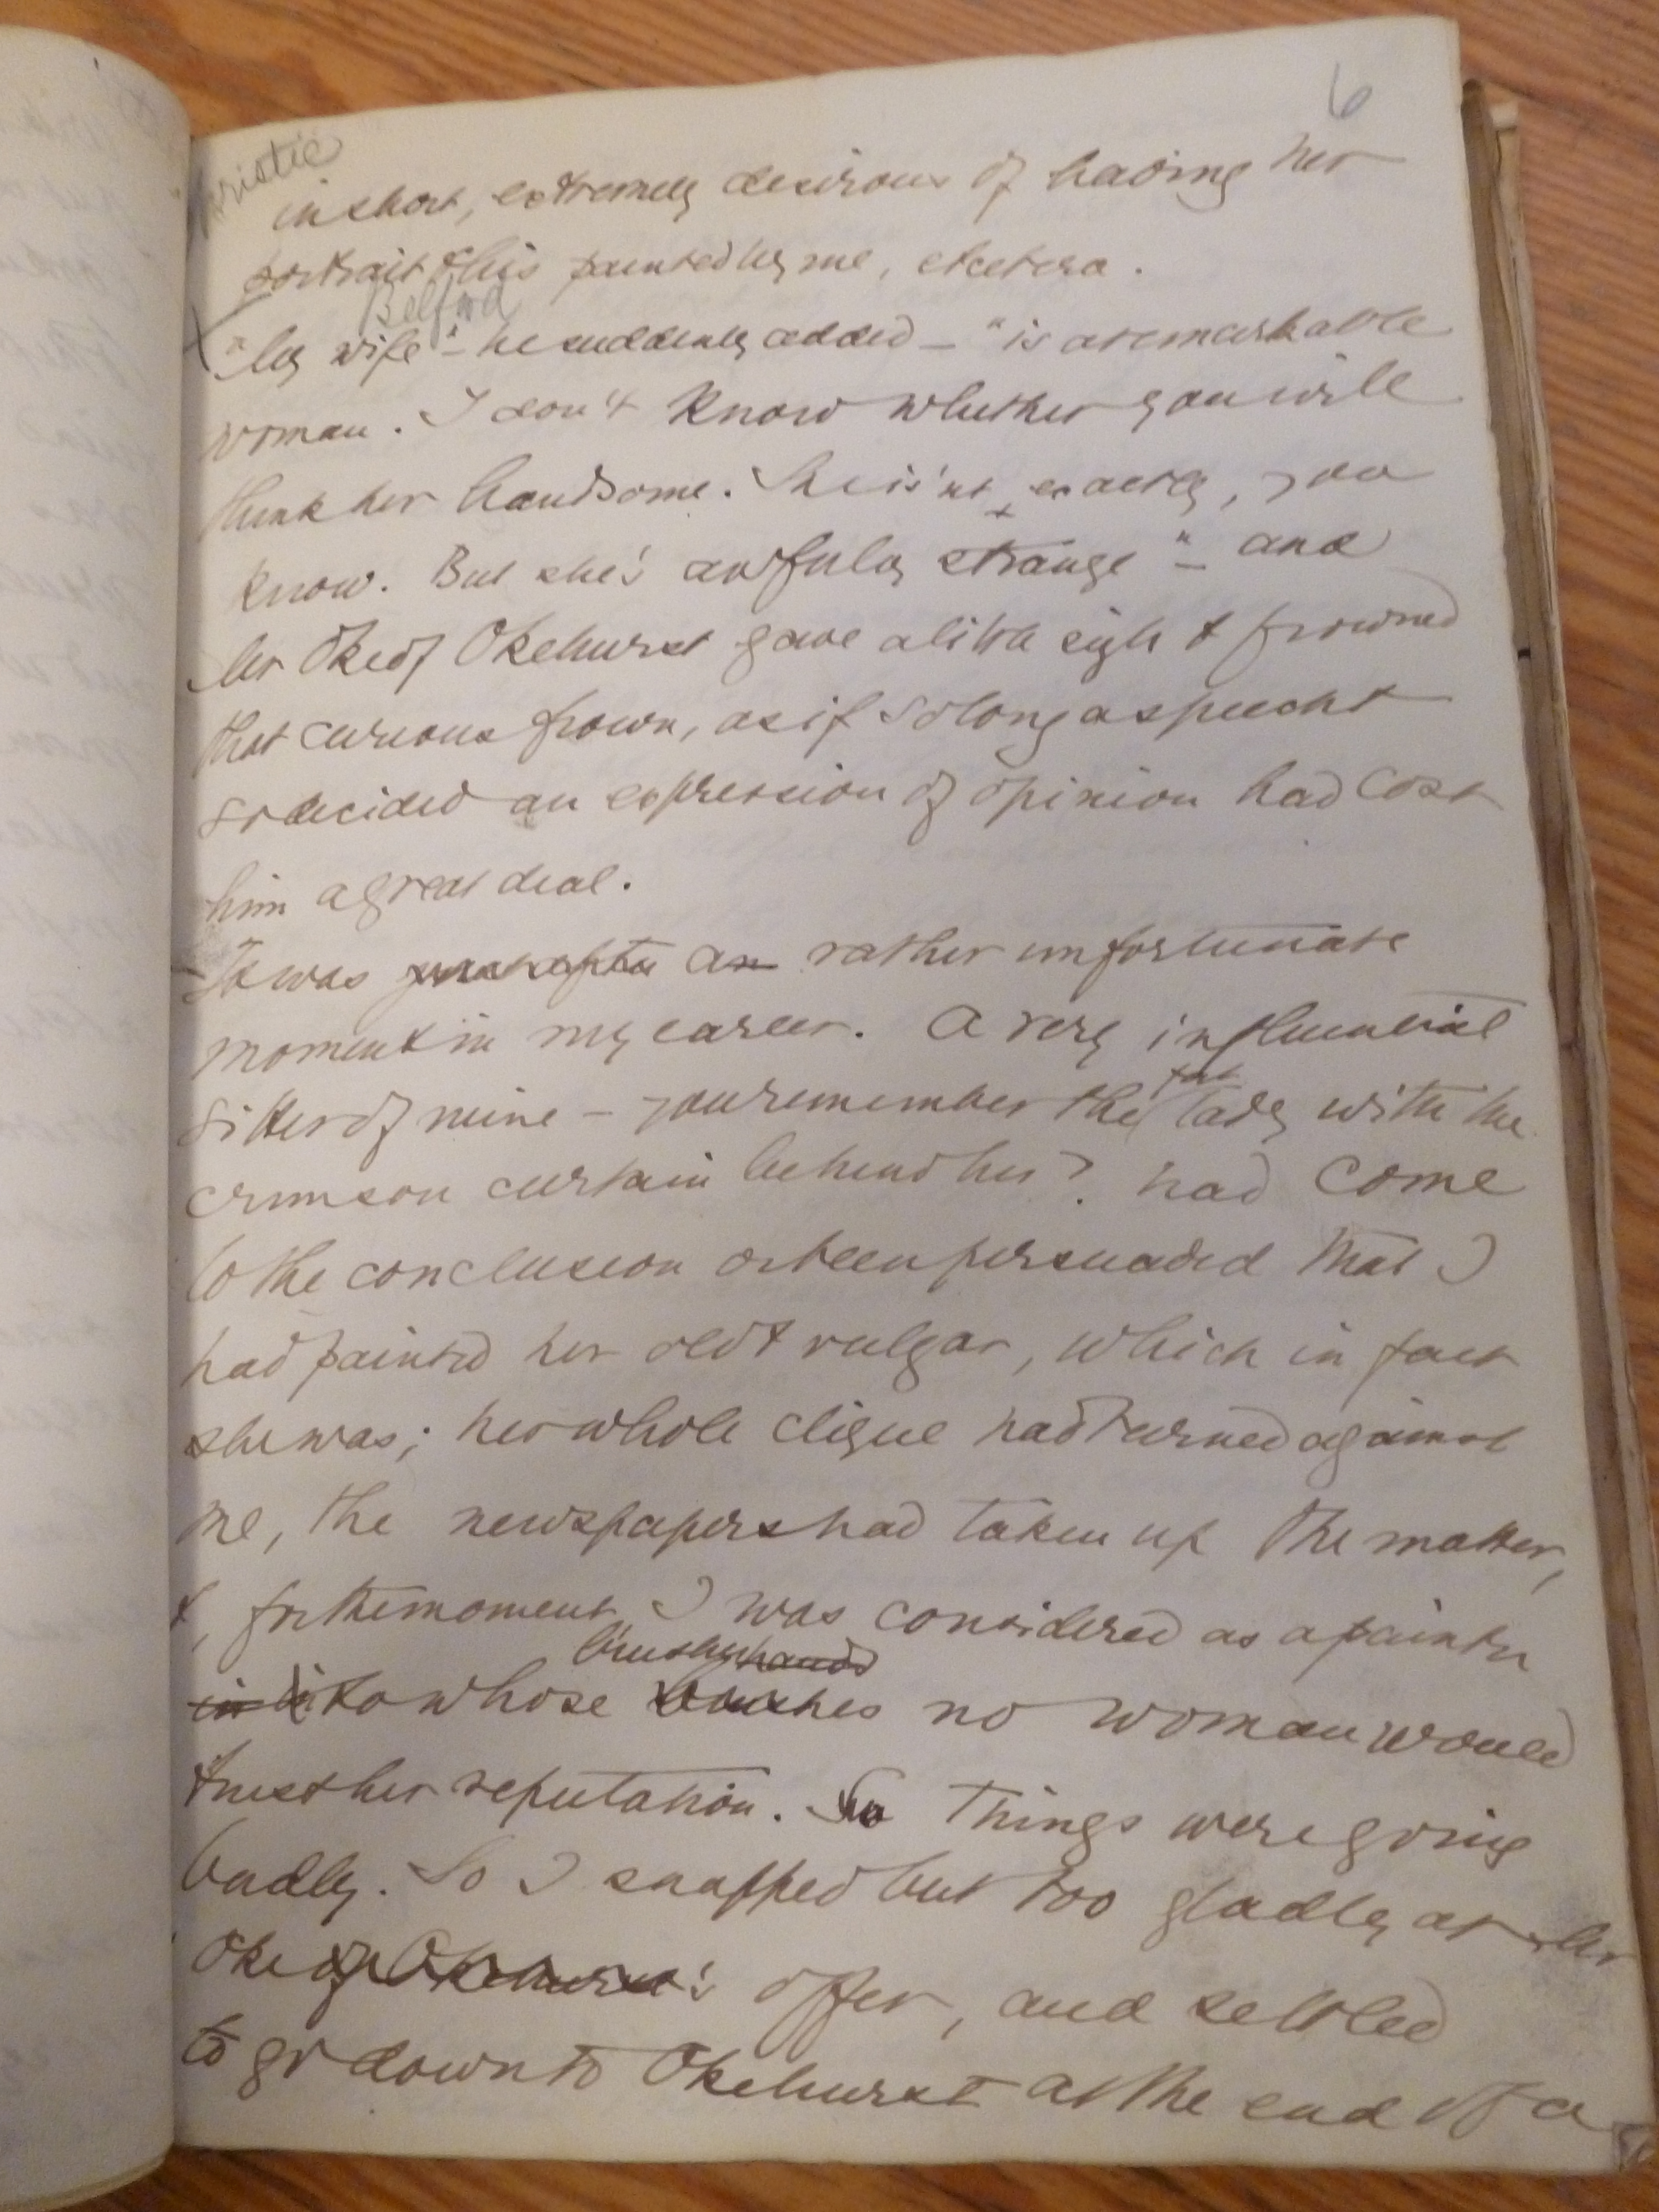 6
in short, extremely desirous of having her
portrait & his painted by me, etcetera.
Belford
"My wife" – he suddenly added – "is a remarkable
woman. I don't know whether you will
think her handsome. She is'nt exactly, you
know. But she's awfully strange" – and
Mr Oke of Okehurst gave a little sigh & frowned
that curious frown, as if so long a speech &
so decided an expression of opinion had cost
him a great deal.
It was just after an rather unfortunate
moment in my career. A very influential
fat
sitter of mine – you remember the lady with the
crimson curtain behind her? had come
to the conclusion or been persuaded that I
had painted her old & vulgar, which in fact
she was; her whole clique had turned against
me, the newspapers had taken up the matter,
&, for the moment, I was considered as a painter
brushes hands
in to whose touches no woman would
trust her reputation. So Things were going
badly. So I snapped but too gladly at Mr
Oke of Okehurst's offer, and settled
to go down to Okehurst at the end of a